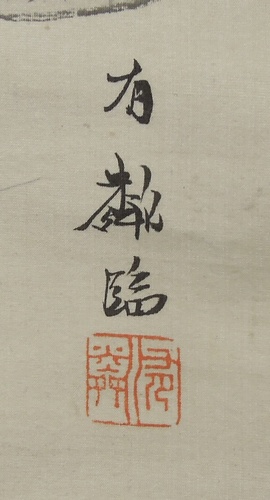 有鄰臨